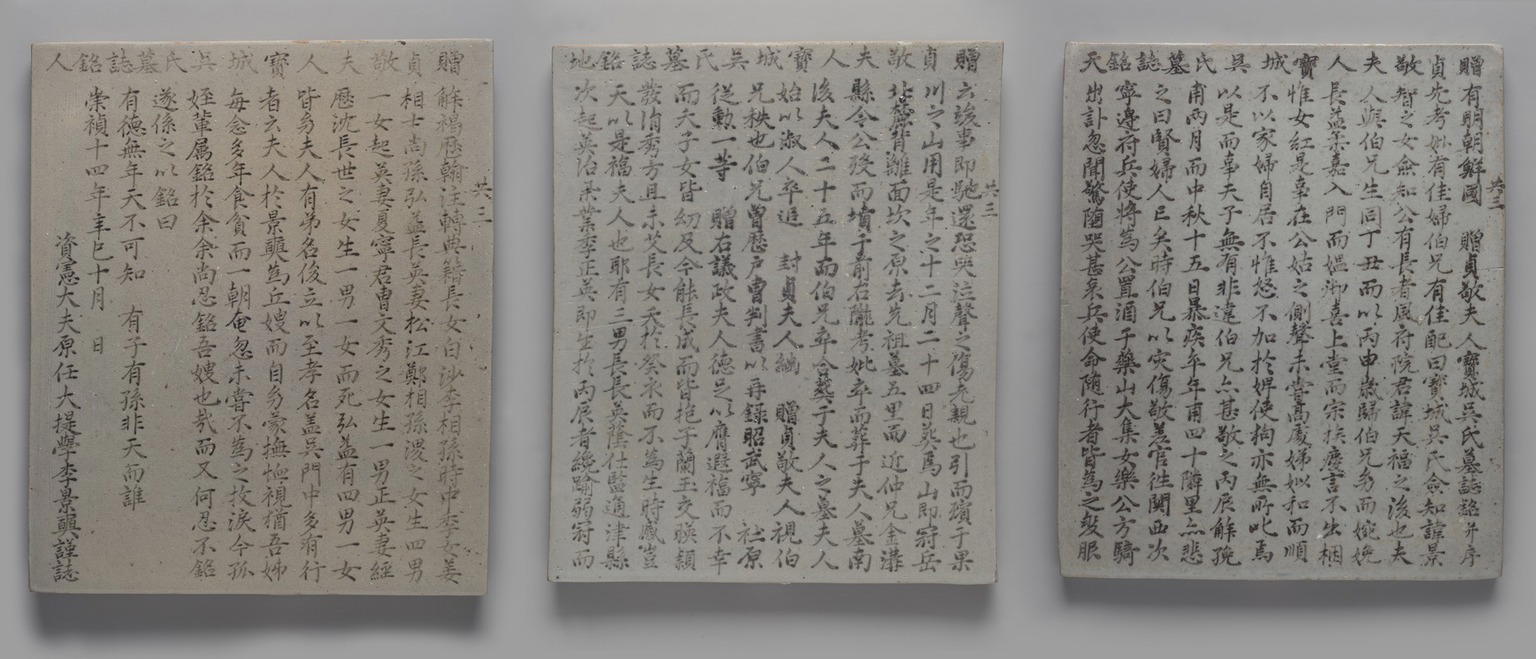 共三
贈貞敬夫人寶城吳氏墓誌銘天
有明朝鮮國 贈貞敬夫人寶城吳氏墓誌銘幷序
先考妣有佳婦伯兄有佳配曰寶城吳氏僉知諱景
智之女僉知公有長者風府院君諱天福之後也夫
人與伯兄生同丁丑而以丙申歲歸伯兄爲而婉娩
長益柔嘉入門而媼御喜上堂而宗族慶言不出梱
惟女紅是事在公姑之側聲未嘗高處娣姒和而順
不以家婦自居不惟怒不加於婢使狗亦無所叱焉
以是而事夫子無有非違伯兄亦甚敬之丙辰解娩
甫兩月而中秋十五日暴疾卒年甫四十隣里亦悲
之曰賢婦人已矣時伯兄以灾傷敬差官往關西次
寧邊府兵使將爲公置酒于藥山大集女樂公方騎
出訃忽聞驚墮哭甚哀兵使命隨行者皆爲之變服
共三
贈貞敬夫人寶城吳氏墓誌銘地
云竣事卽馳還恐哭泣聲之傷先親也引而殯于果
川之山用是年之十二月二十四日葬焉山卽冠岳
北麓背離面坎之原去先祖墓五里而近仲兄金溝
縣令公歿而墳于前右隴考妣卒而葬于夫人墓南
後夫人二十五年而伯兄卒合葬于夫人之墓夫人
始以淑人卒追 封貞夫人繼 贈貞敬夫人視伯
兄秩也伯兄曾歷戶曹判書以再錄昭武寧 社原
從勳一等 贈右議政夫人德足以膺遐福而不幸
而夭子女皆幼及今能長成而皆抱子蘭玉交暎頴
發淸秀方且未艾長女夭於癸亥而不爲生時慼豈
天以是福夫人也耶有三男長長英蔭仕監通津縣
次起英治柔業季正英卽生於丙辰者纔踰弱冠而
共三
贈貞敬夫人寶城吳氏墓誌銘人
解褐歷翰注轉典籍長女白沙李相孫時中季女姜
相士尙孫弘益長英妻松江鄭相孫溭之女生四男
一女起英妻夏寧君曹文秀之女生一男正英妻經
歷沈長世之女生一男一女而死弘益有四男一女
皆爲夫人有弟名俊立以至孝名盖吳門中多有行
者云夫人於景奭爲丘嫂而自爲蒙撫恤視猶吾姊
每念多年食貧而一朝奄忽未嘗不爲之抆淚今孤
姪輩属銘於余余尙忍銘吾嫂也哉而又何忍不銘
遂係之以銘曰
有德無年天不可知 有子有孫非天而誰
崇禎十四年辛巳十月 日
資憲大夫原任大提學李景奭謹誌